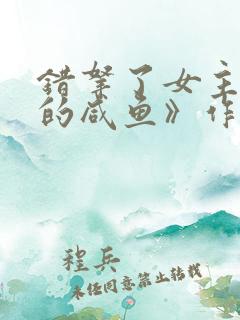 错拿了女主
的咸鱼》作
程兵
未经同意禁止转载